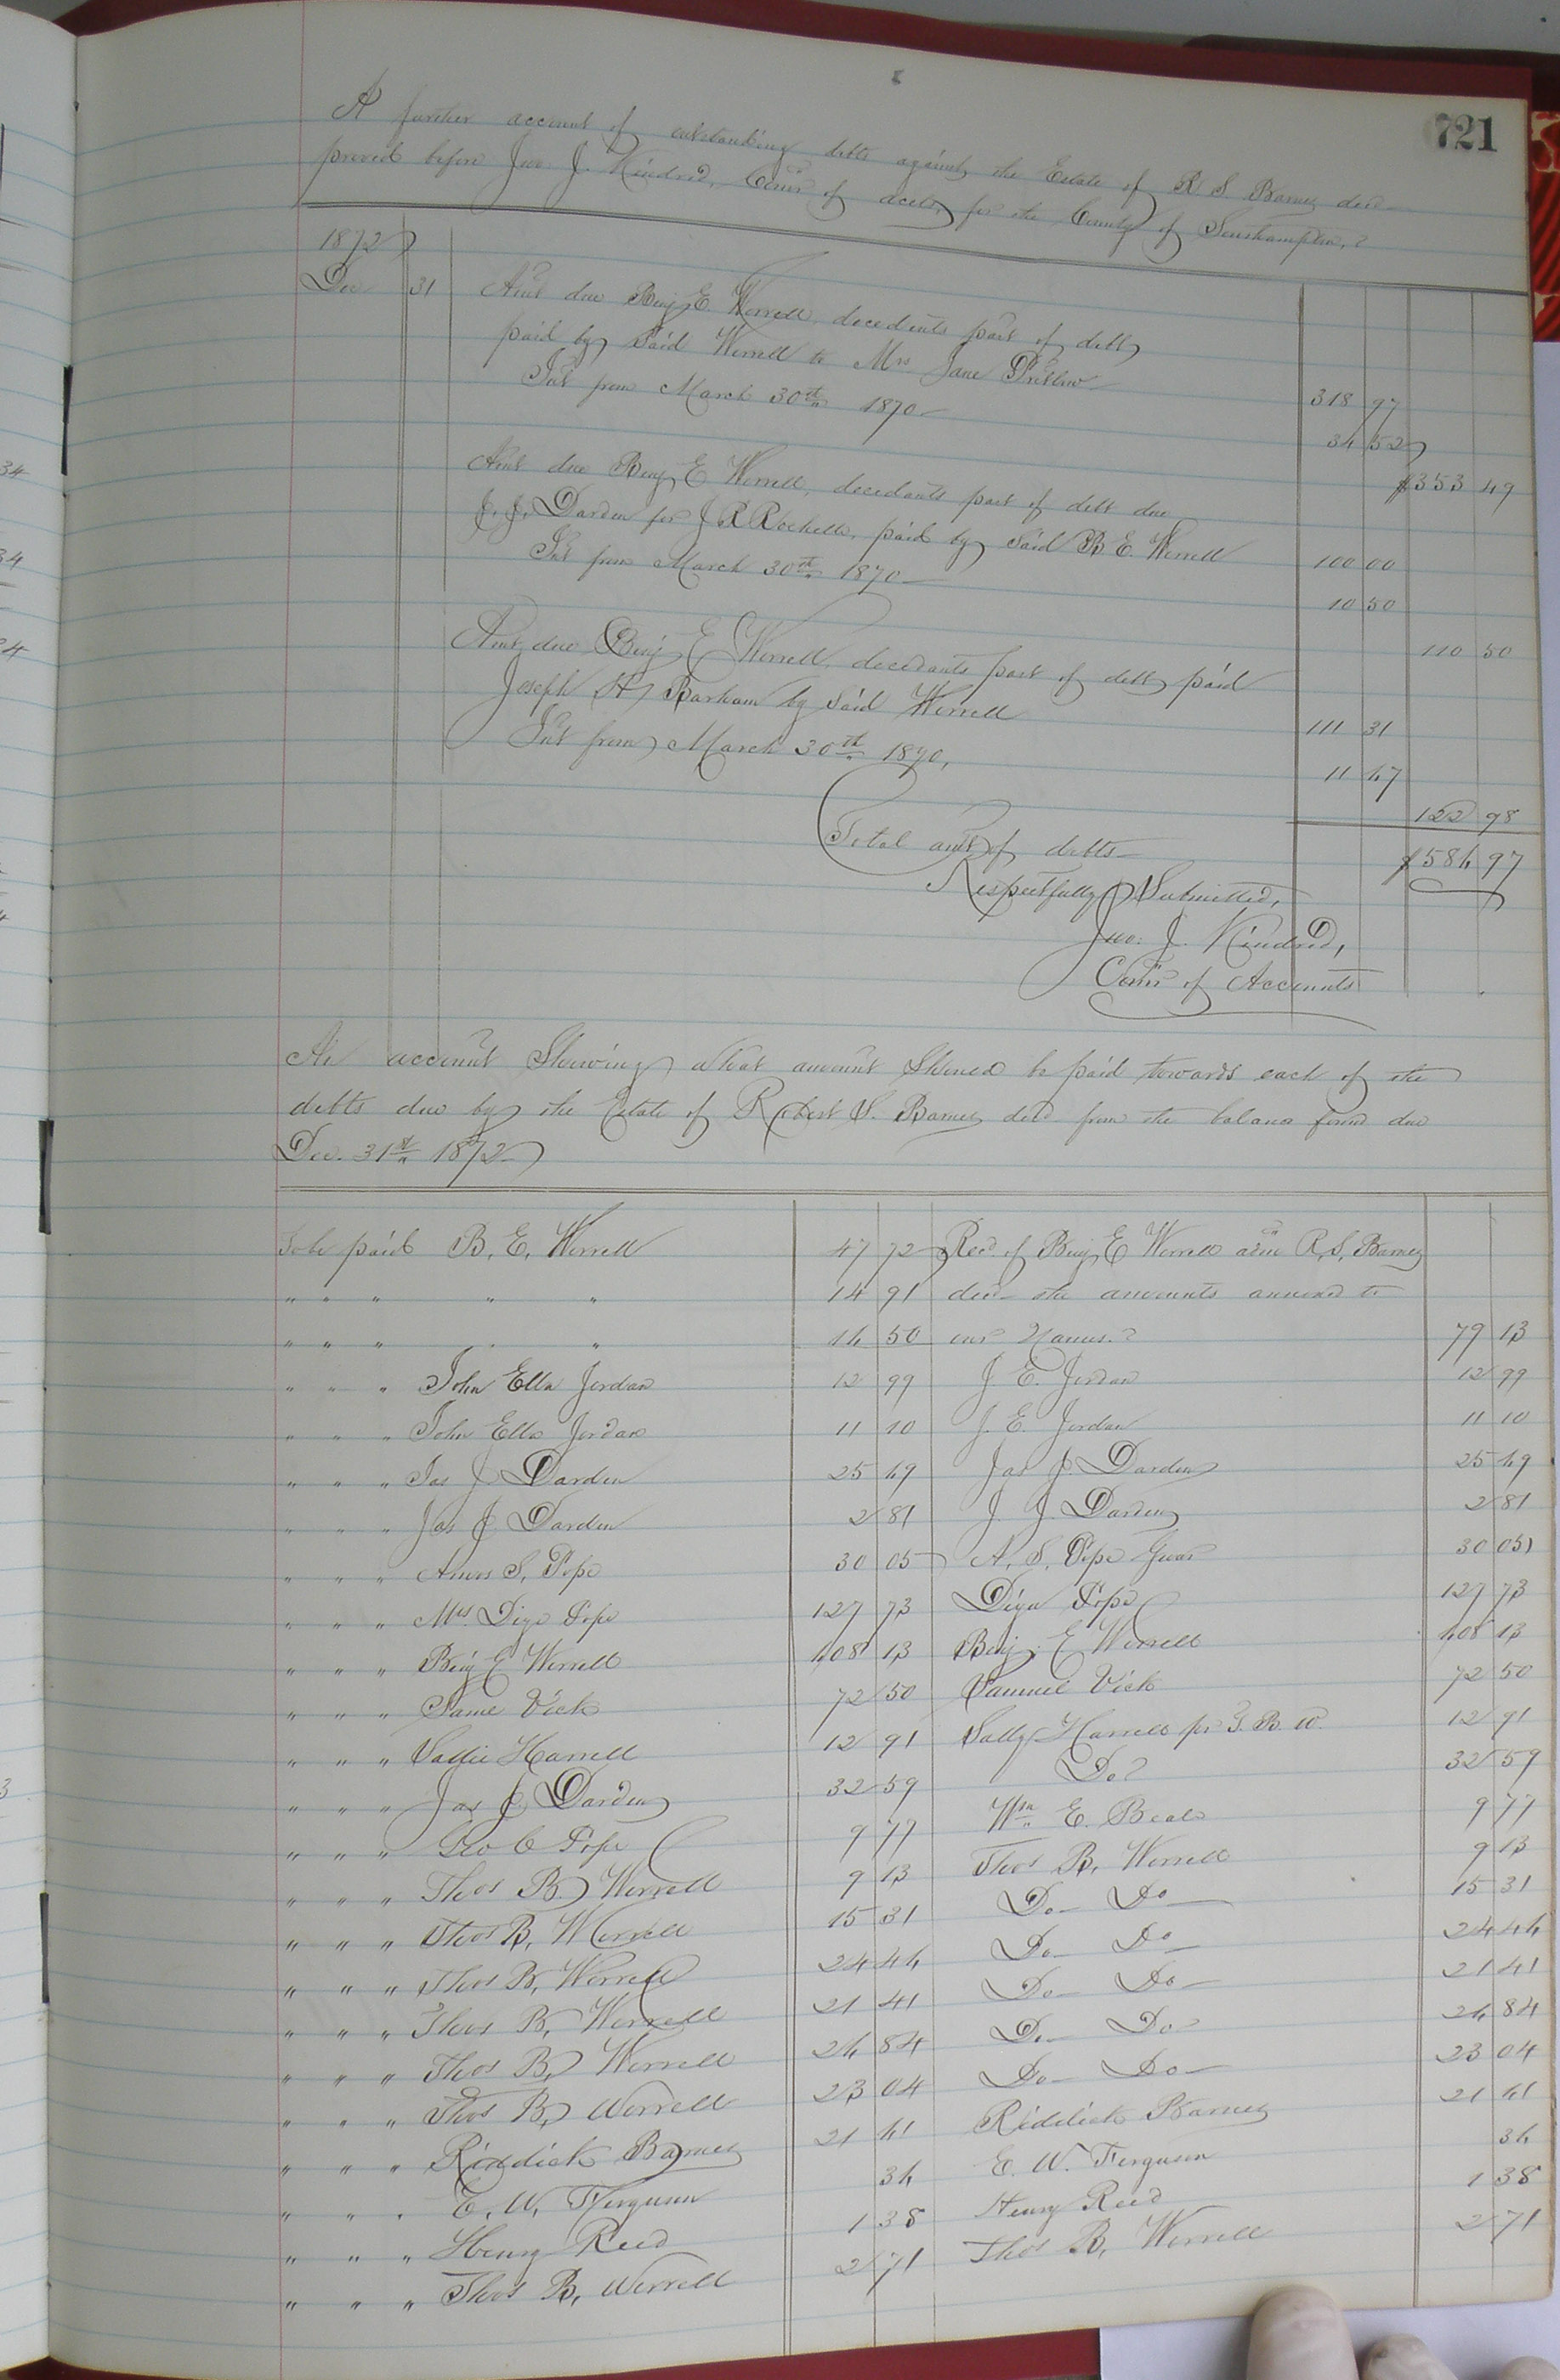 721
A further account of outstanding debts against the Estate of R S. Barnes decd
proved before Jno. J. Kindred, Comr of accts, for the County of Southampton,
1872
Dec 31 Amt due Benj E. Worrell, decedents part of debt
paid by said Worrell to Mrs Jane Pretlow 318 97
Int from March 30th 1870 34 52
$353 49
Amt due Benj E Worrell, decedants part of debt due
J. J. Darden for J R Rochelle, paid by said B E. Worrell 100 00
Int from March 30th 1870 10 50
110 50
Amt due Benj E Worrell, decedants part of debt paid
Joseph H Barham by said Worrell 111 31
Int from March 30th 1870, 11 67
122 98
Total amt of debts $586 97
Respectfully Submitted,
Jno. J. Kindred,
Comr of Accounts
An account Shewing what amount Should be paid towards each of the
debts due by the Estate of Robert S. Barnes decd from the balance found due
Dec. 31st 1872
To be paid B. E. Worrell 47 72 Recd. of Benj E Worrell adm R. S. Barnes
" " " " " 14 91 decd the amounts annexed to
" " " " " 16 50 our Names. 79 13
" " " John Ella Jordan 12 99 J E. Jordan 12 99
" " " John Ella Jordan 11 10 J. E. Jordan 11 10
" " " Jas J Darden 25 69 Jas J. Darden 25 69
" " " Jas J. Darden 2 81 J. J. Darden 2 81
" " " Amos S, Pope 30 05 A. S. Pope Guar 30 05
" " " Mrs. Diza Pope 127 73 Diza Pope 127 73
" " " Benj E Worrell 608 13 Benj. E Worrell 608 13
" " " Saml Vick 72 50 Samuel Vick 72 50
" " " Sallie Harrell 12 91 Sally Harrell pr T. B. W. 12 91
" " " Jas J. Darden 32 59 Do 32 59
" " " Geo C Pope 9 77 Wm E. Beale 9 77
" " " Thos B. Worrell 9 13 Thos B. Worrell 9 13
" " " Thos B, Worrell 15 31 Do Do 15 31
" " " Thos B, Worrell 24 46 Do Do 24 46
" " " Thos B, Worrell 21 41 Do Do 21 41
" " " Thos B, Worrell 26 84 Do Do 26 84
" " " Thos B, Worrell 23 04 Do Do 23 04
" " " Riddick Barnes 21 61 Riddick Barnes 21 61
" " " E. W. Ferguson 36 E. W. Ferguson 36
" " " Henry Reed 1 38 Henry Reed 1 38
" " " Thos B, Worrell 2 71 Thos B, Worrell 2 71